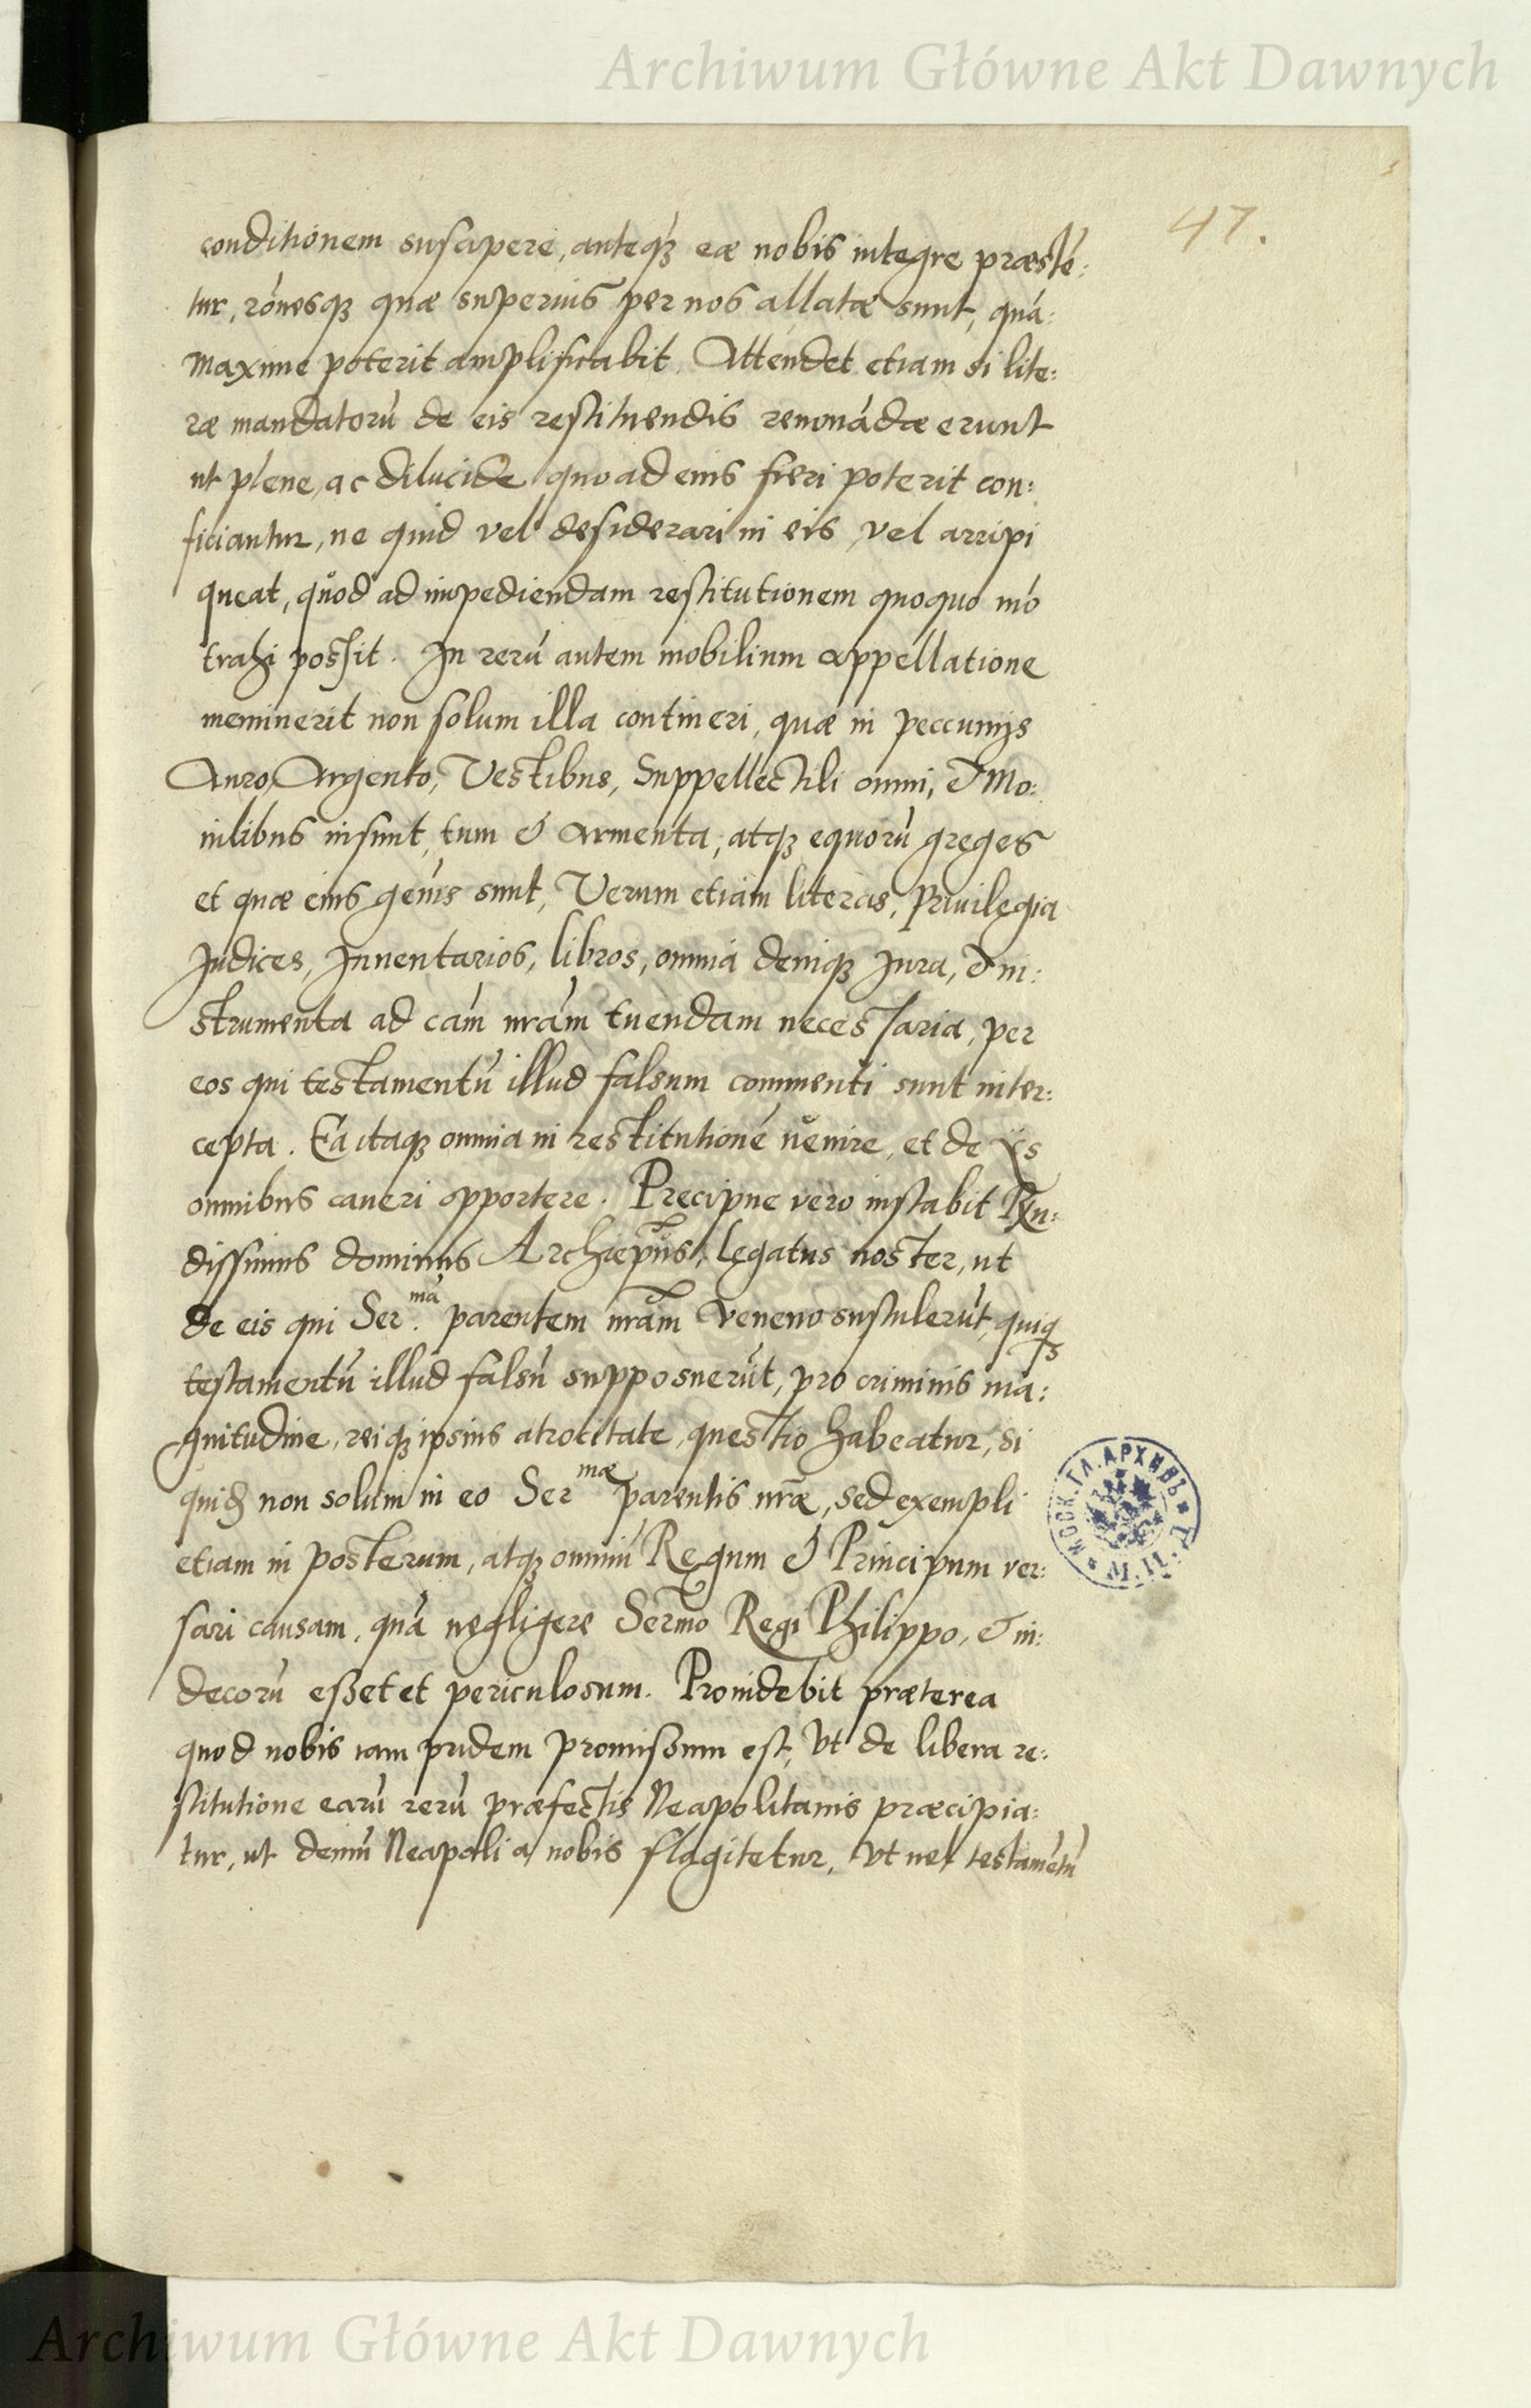 Archiwum Główne Akt Dawnych
47.
conditionem suscipere, anteq̃ꝫ eæ nobis integre præstẽ:
tur, rõnesqꝫ quæ superius per nos allatæ sunt, quã:
maxime poterit amplificabit. Attendet etiam si lite:
ræ mandatorũ de eis restituendis renouãdæ erunt
ut plene, ac dilucide, quoad eius fieri poterit con:
ficiantur, ne quid vel desiderari in eis, vel arripi
queat, quod ad impediendam restitutionem quoquo mõ
trahi possit. In rerũ autem mobilium appellatione
meminerit non solum illa contineri, quæ in peccunijs
Auro, Argento, Vestibus, Suppellectili omni, & Mo:
nilibus insunt, tum & armenta, atqꝫ equorũ greges
et quæ eius geñis sunt, Verum etiam literas, Priuilegia
Indices, Inuentarios, libros, omnia deniqꝫ Iura, & in:
strumenta ad cãm nrãm tuendam necessaria, per
eos qui testamentũ illud falsum commenti sunt inter:
cepta. Ea itaqꝫ omnia in restitutionẽ uenire, et de ijs
omnibus caueri opportere. Precipue vero instabit Rxu:
dissimus dominus Archiepũs, legatus noster, ut
de eis qui Ser.mã parentem nrãm veneno sustulerũt, quiqꝫ
testamentũ illud falsũ supposuerũt, pro criminis ma:
gnitudine, reiqꝫ ipsius atrocitate, questio habeatur, si
quidẽ non solum in eo Sermæ parentis nrãe, sed exempli
etiam in posterum, atqꝫ omniũ Regum & Principum ver:
sari causam, quã negligere Sermo Regi Philippo, & in:
decorũ eßet et periculosum. Prouidebit præterea
quod nobis iam pridem promißum est, Vt de libera re:
stitutione earũ rerũ præfectis Neapolitanis præcipia:
tur, ut demũ Neapoli a nobis flagitetur, Vt uel testamẽtũ
МОСК. ГЛ. АРХИВЪ
М. И. Д.
Archiwum Główne Akt Dawnych